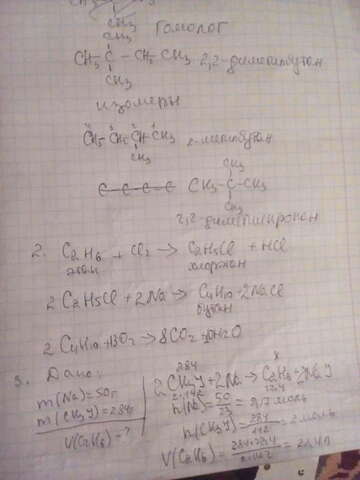 CH₃
Гомолог
CH₃
CH₃-C-CH₂CH₃ 2,2-диметилбутан
CH₃
изомеры
CH₃ CH₂ CH CH₃ 2-метилбутан
CH₃
CH₃
C-C-C-C CH₃-C-CH₃
CH₃
2,2-диметилпропан
2. C₂H₆ + Cl₂ → C₂H₅Cl + HCl
этан хлорэтан
2 C₂H₅Cl + 2Na → C₄H₁₀ + 2NaCl
бутан
2 C₄H₁₀ + 13O₂ → 8CO₂ + 10H₂O
3. Дано:
m(Na) = 50г
m(CH₃I) = 284г
V(C₂H₆) = ?
284
2 CH₃I + 2Na → C₂H₆ + 2NaI
2·142 22,4
n(Na) = 50/23 =
n(CH₃I) = 284/142 = 2 моль
V(C₂H₆) = 284·22,4/2·142 = 22,4л